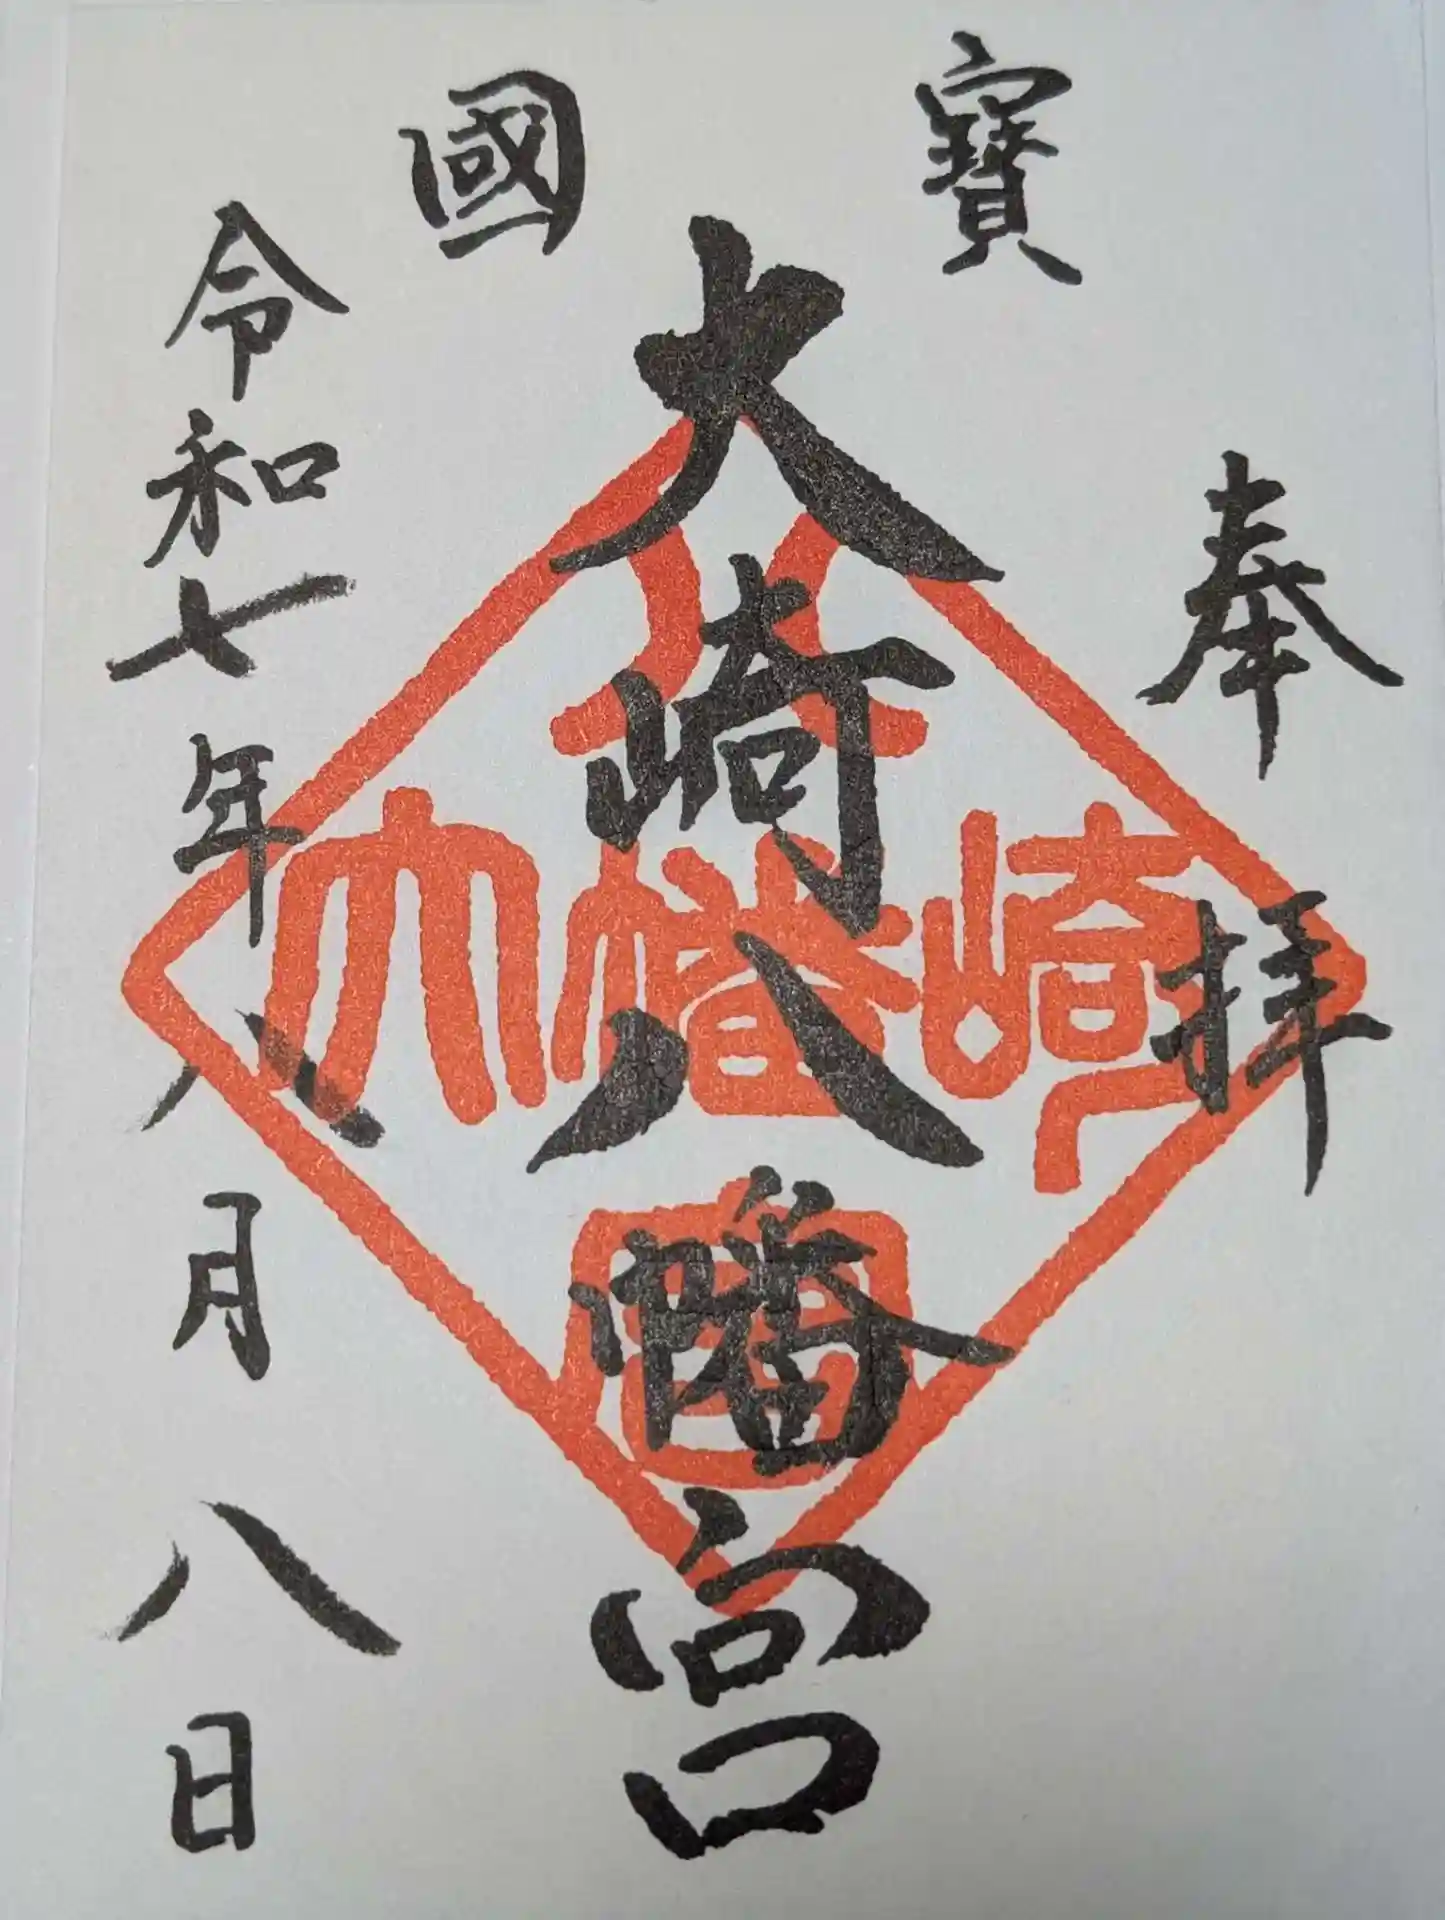 奉拝
寶國
大崎八幡宮
令和七年八月八日
八
大幡崎
宮